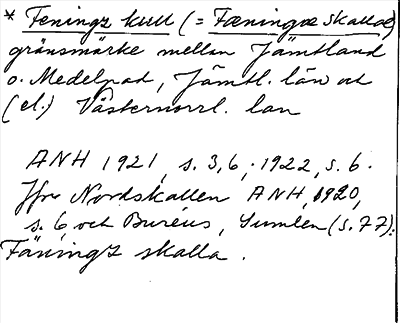 * Fenings kull (= Fæningæ skallæ)
gränsmärke mellan Jämtland
o. Medelpad, Jämtl. län och
(el.) Västernorrl. lan
ANH 1921, s. 3, 6; 1922, s. 6.
Jfr Nordskallen ANH, 1920,
s. 6, och Bureus, Sumlen (s. 77):
Fänings skalla.